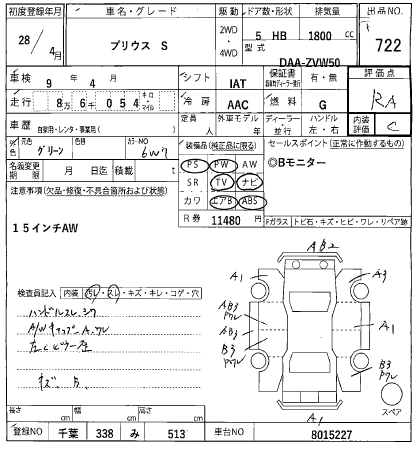 初度登録年月 車名・グレード 駆動 ドア数・形状 排気量 出品NO.
28/4月 プリウス S 2WD・4WD 5 HB 1800 cc 722
型式 DAA-ZVW50
車検 9年4月 シフト IAT 保証書 有・無 評価点
走行 8万6千054 キロ・マイル 冷房 AAC 燃料 G RA
車歴 自家用・レンタ・事業用( ) 定員 人 外車モデル 年 ディーラー・並行 ハンドル 左・右 内装評価 C
外色 元色 グリーン 色替 カラーNO 6W7 装備品(純正品に限る) セールスポイント(正常に作動するもの)
名義変更期限 月 日迄 積載量 t PS PW AW ◎Bモニター
注意事項(欠品・修復・不具合箇所および状態) SR TV ナビ
カワ エアB ABS
R券 11480 円 Fガラス トビ石・キズ・ヒビ・ワレ・リペア跡
15インチAW
AB2
A1 A3
検査員記入 内装 汚レ・スレ・キズ・キレ・コゲ・穴
AB3 ワレ
A1
AB3
B3 ワレ
B3 ワレ
キズ、
A1
スペア
長さ cm 幅 cm 高さ cm
登録NO 千葉 338 み 513 車台NO 8015227